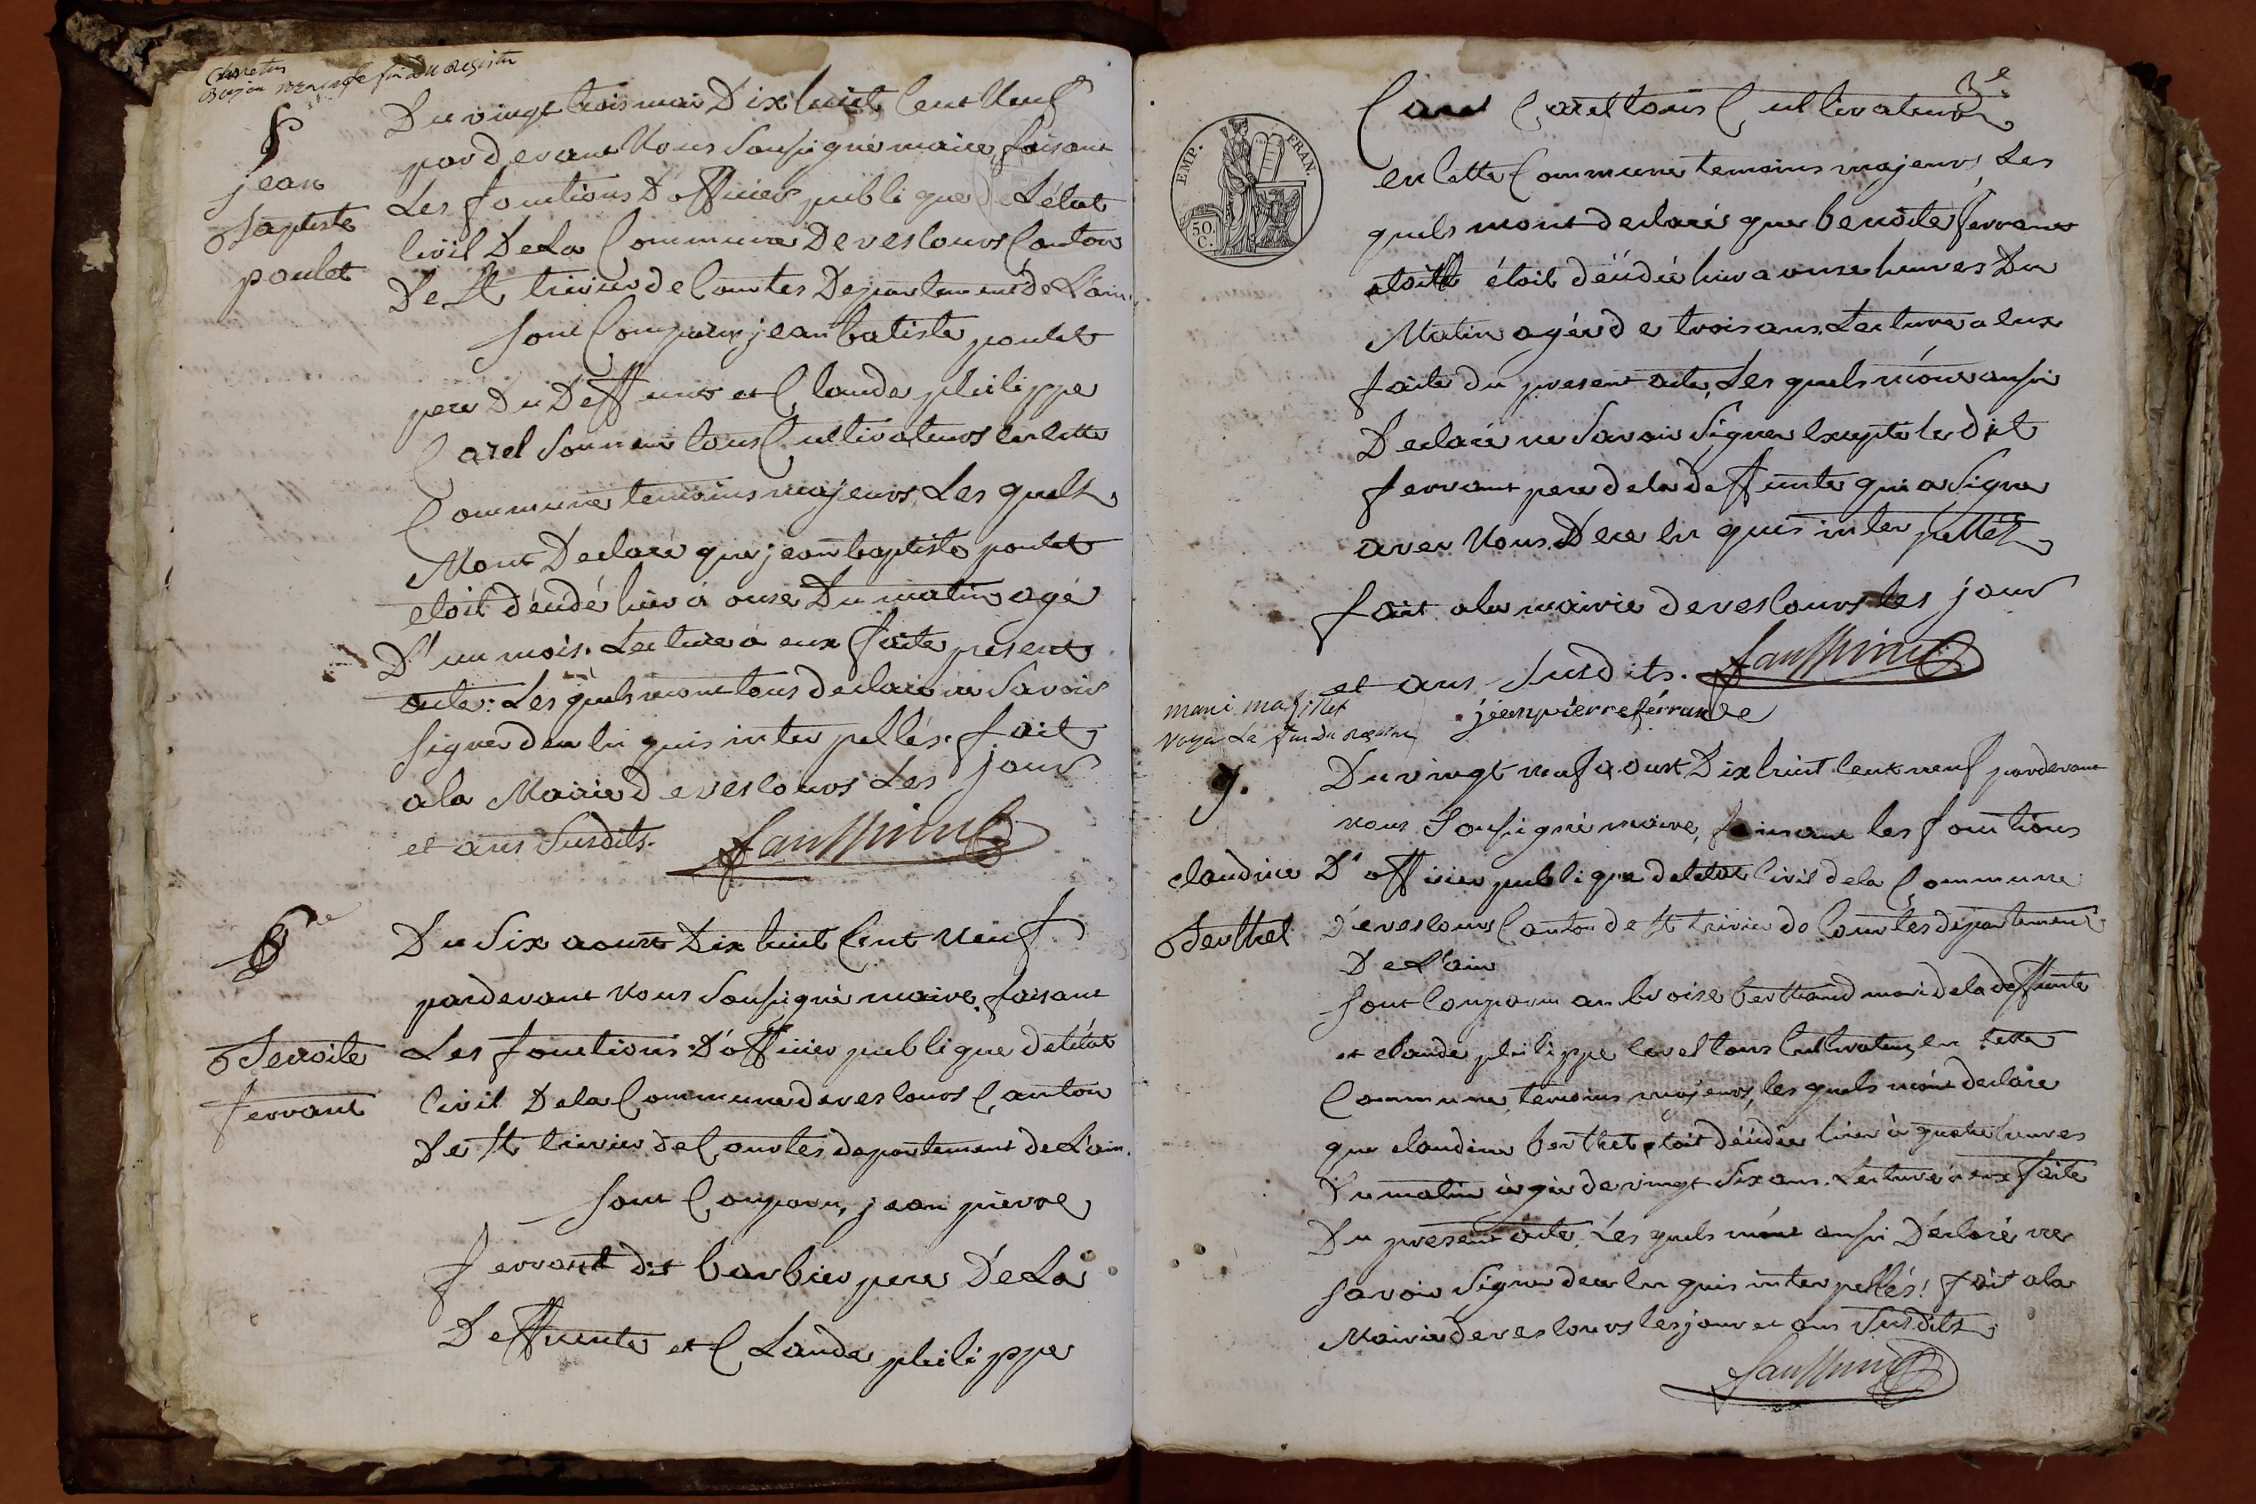 voyez la fin du registre
5
jean
Baptiste
poulet
Du vingt trois mai Dix huit Cent Neuf
pardevant Nous Soussigné maire, faisant
Les fonctions D'officier publique de L'état
Civil De La Commune De vescours Canton
De St trivier de Courtes Departement de L'ain.
Sont Comparu, jean batiste poulet
pere Du Deffunt et Claude philippe
Carel tous Cultivateurs en Cette
Commune temoins majeurs, Les quels
Mont Declaré que jean baptiste poulet
etoit décédé hier à onze Du matin agé
D'un mois. Lecture à eux faite présent
acte: Les quels mont tous declaré ne Savoir
Signer de ce en quis inter pellés. fait
a la Mairie de vescours Les jour
et ans Susdits.
6e
Benoite
ferrant
Du Six aoust Dix huit Cent Neuf
pardevant Nous Soussigné maire, faisant
Les fonctions D'officier publique de létat
Civil De la Commune de vescours Canton
De St trivier de Courtes departement de L'ain.
Sont Comparu, jean pierre
ferrant dit barbier pere De La
Deffunte et Claude philippe
3e
EMP. FRAN.
50.
C.
Carel tous Cultivateurs
en Cette Commune temoins majeurs, Les
quels mont declaré que benoite ferrant
étoit décédé hier a onze heures Du
Matin agée de trois ans. Lecture a eux
faite du present acte, Les quels m'ont aussi
Declaré ne Savoir Signer Excepté le dit
ferrant pere de la deffunte qui a Signe
avec Nous. De ce en quis inter pellét
fait a la mairie de vescours les jour
et ans Susdits.
jéanpierreférrande
voyez La fin du registre
7.
claudine
Berthet
Du vingt neuf aoust Dix huit Cent neuf pardevant
nous Soussigné maire, faisant les fonctions
D'officier publique de letat Civil de la Commune
De vescours Canton de St trivier de Courtes département
De L'ain
Sont Comparu ambroise berthaud mari de la deffunte
et claude philippe Carel tous Cultivateurs en Cette
Commune, temoins majeurs, les quels m'ont declaré
que claudine berthet etoit décédée hier à quatre heures
Du matin agée de vingt Six ans. Lecture à eux faite
Du present acte. Les quels m'ont aussi Déclaré ne
Savoir Signer de ce en quis inter pellés! fait a la
Mairie de vescours les jour et ans Susdits.